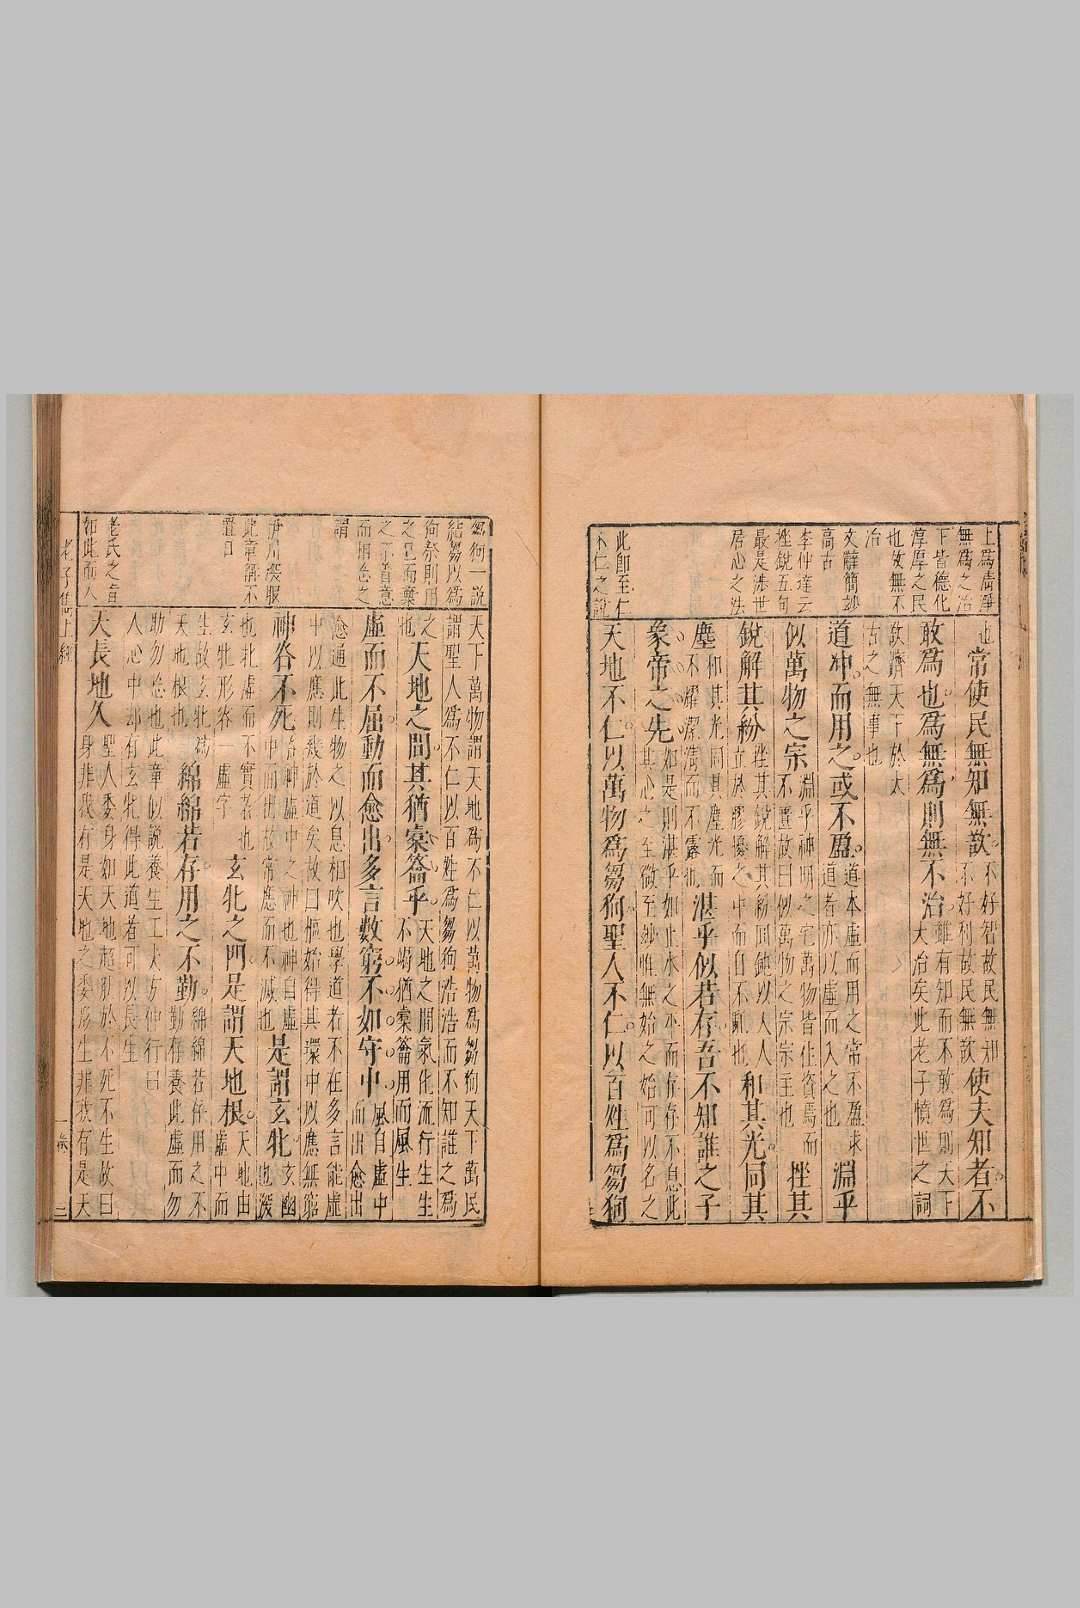 上爲清淨
無爲之治
下皆德化
淳厚之民
也故無不
治
文辭簡妙
高古
李仲達云
挫銳五句
最是涉世
居心之法
此卽至仁
不仁之說
也常使民無知無欲不好智故民無知
不好利故民無欲使夫知者不
敢爲也爲無爲則無不治雖有知而不敢爲則天下
大治矣此老子憤世之詞
欲濟天下於太
古之無事也
道冲而用之或不盈道本虛而用之常不盈求
道者亦以虛而入之也淵乎
似萬物之宗淵乎神明之宅萬物皆往資焉而
不匱故曰似萬物之宗宗主也挫其
銳解其紛挫其銳解其紛同鈍以人人
立於膠擾之中而自不亂也和其光同其
塵和其光同其塵光而
不耀潔淸而不露也湛乎似若存吾不知誰之子
象帝之先如是則湛乎如止水之不而存存不息此
其心之至微至妙唯無始之始可以名之
天地不仁以萬物爲芻狗聖人不仁以百姓爲芻狗
芻狗一說
結芻以爲
狗祭則用
之已而棄
之亦着意
而相忘之
謂
此章稱不
老氏之旨
如此而人
天下萬物謂天地爲不仁以萬物爲芻狗天下萬民
謂聖人爲不仁以百姓爲芻狗浩浩而不知誰之爲
之也天地之間其猶橐籥乎天地之間氣化流行生生
不竭猶橐籥用而風生
虛而不屈動而愈出多言數窮不如守中風自虛中
而出愈出
愈通此生物之以息相吹也學道者不在多言能虛
中以應則幾於道矣故曰樞始得其環中以應無窮
神谷不死谷神虛中之神也神自虛
中而出故常應而不滅也是謂玄牝玄幽
也深
也牝虛而不實者也
玄牝形容一虛字玄牝之門是謂天地根天地由
虛中而
生故玄牝爲
天地根也綿綿若存用之不勤綿綿若存用之不
勤存養此虛而勿
助勿忘也此章似說養生工夫方仲行曰
人心中却有玄牝得此道者可以長生
天長地久聖人委身如天地超脫於不死不生故曰
身非我有是天地之委形生非我有是天